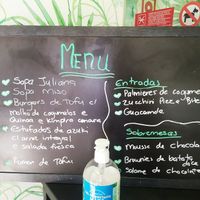 MENU
Sopa Juliana
Sopa Miso
Burgers de Tofu c/
molho de cogumelos e
Quinoa e
Estufados de azuki
c/ arroz integral
e salada fresca
Ramen de Tofu
Entradas
Palmieres de cogume
Zucchini Pizza Bite
Guacamole
Sobremesas
Mousse de chocola
Brownies de batata
doce
Salame de chocolate